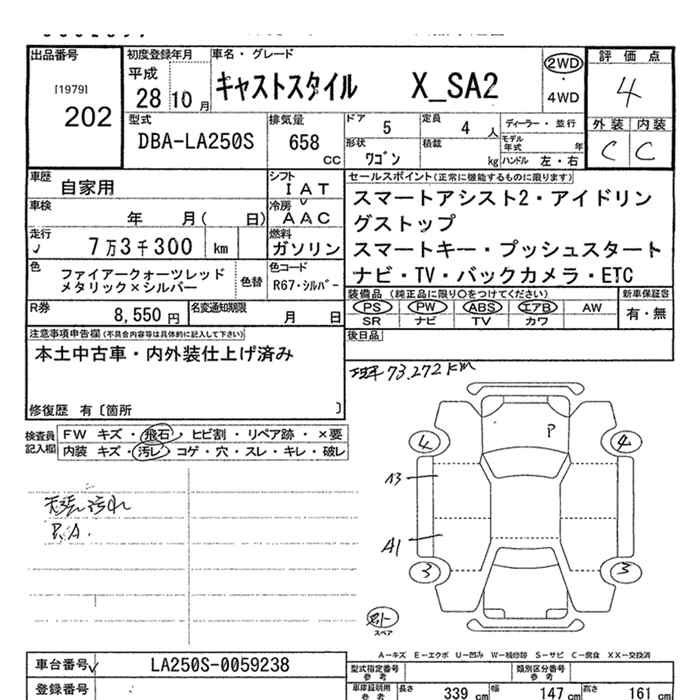 出品番号
[1979]
202
初度登録年月
平成
28 10月
車名・グレード
キャストスタイル X_SA2
2WD
・
4WD
評価点
4
外装 内装
C C
型式
DBA-LA250S
排気量
658
CC
ドア
5
定員
4 人
形状
ワゴン
積載
kg
ディーラー・並行
モデル年式 年
ハンドル 左・右
車歴
自家用
シフト
I A T
セールスポイント(正常に機能するものに限ります)
スマートアシスト2・アイドリン
グストップ
スマートキー・プッシュスタート
ナビ・TV・バックカメラ・ETC
車検
年 月( 日)
冷房
A A C
走行
7万3千300 km
燃料
ガソリン
色
ファイアークォーツレッド
メタリック×シルバー
色替
色コード
R67・シルバー
装備品 (純正品に限り○をつけてください)
PS PW ABS エアB AW
SR ナビ TV カワ
新車保証書
有・無
R券
8,550円
名変通知期限
月 日
後日品
注意事項申告欄(不具合内容等は具体的に記入して下さい)
本土中古車・内外装仕上げ済み
修復歴 有〔箇所 〕
73.272 km
検査員
記入欄
FW キズ・飛石・ヒビ割・リペア跡・×要
内装 キズ・汚レ・コゲ・穴・スレ・キレ・破レ
汚れ
P.A.
P
4
4
A3
A1
3
3
スペア
A-キズ E-エクボ U-凹み W-補修跡 S-サビ C-腐食 XX-交換済
車台番号
LA250S-0059238
登録番号
型式指定番号
参考
類別区分番号
参考
車庫証明用
参考
長さ 339 cm
幅 147 cm
高さ 161 cm